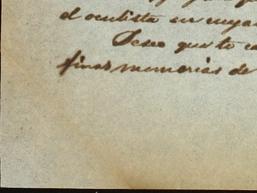 el oculista en cuya
Deseo que te co
finas memorias de